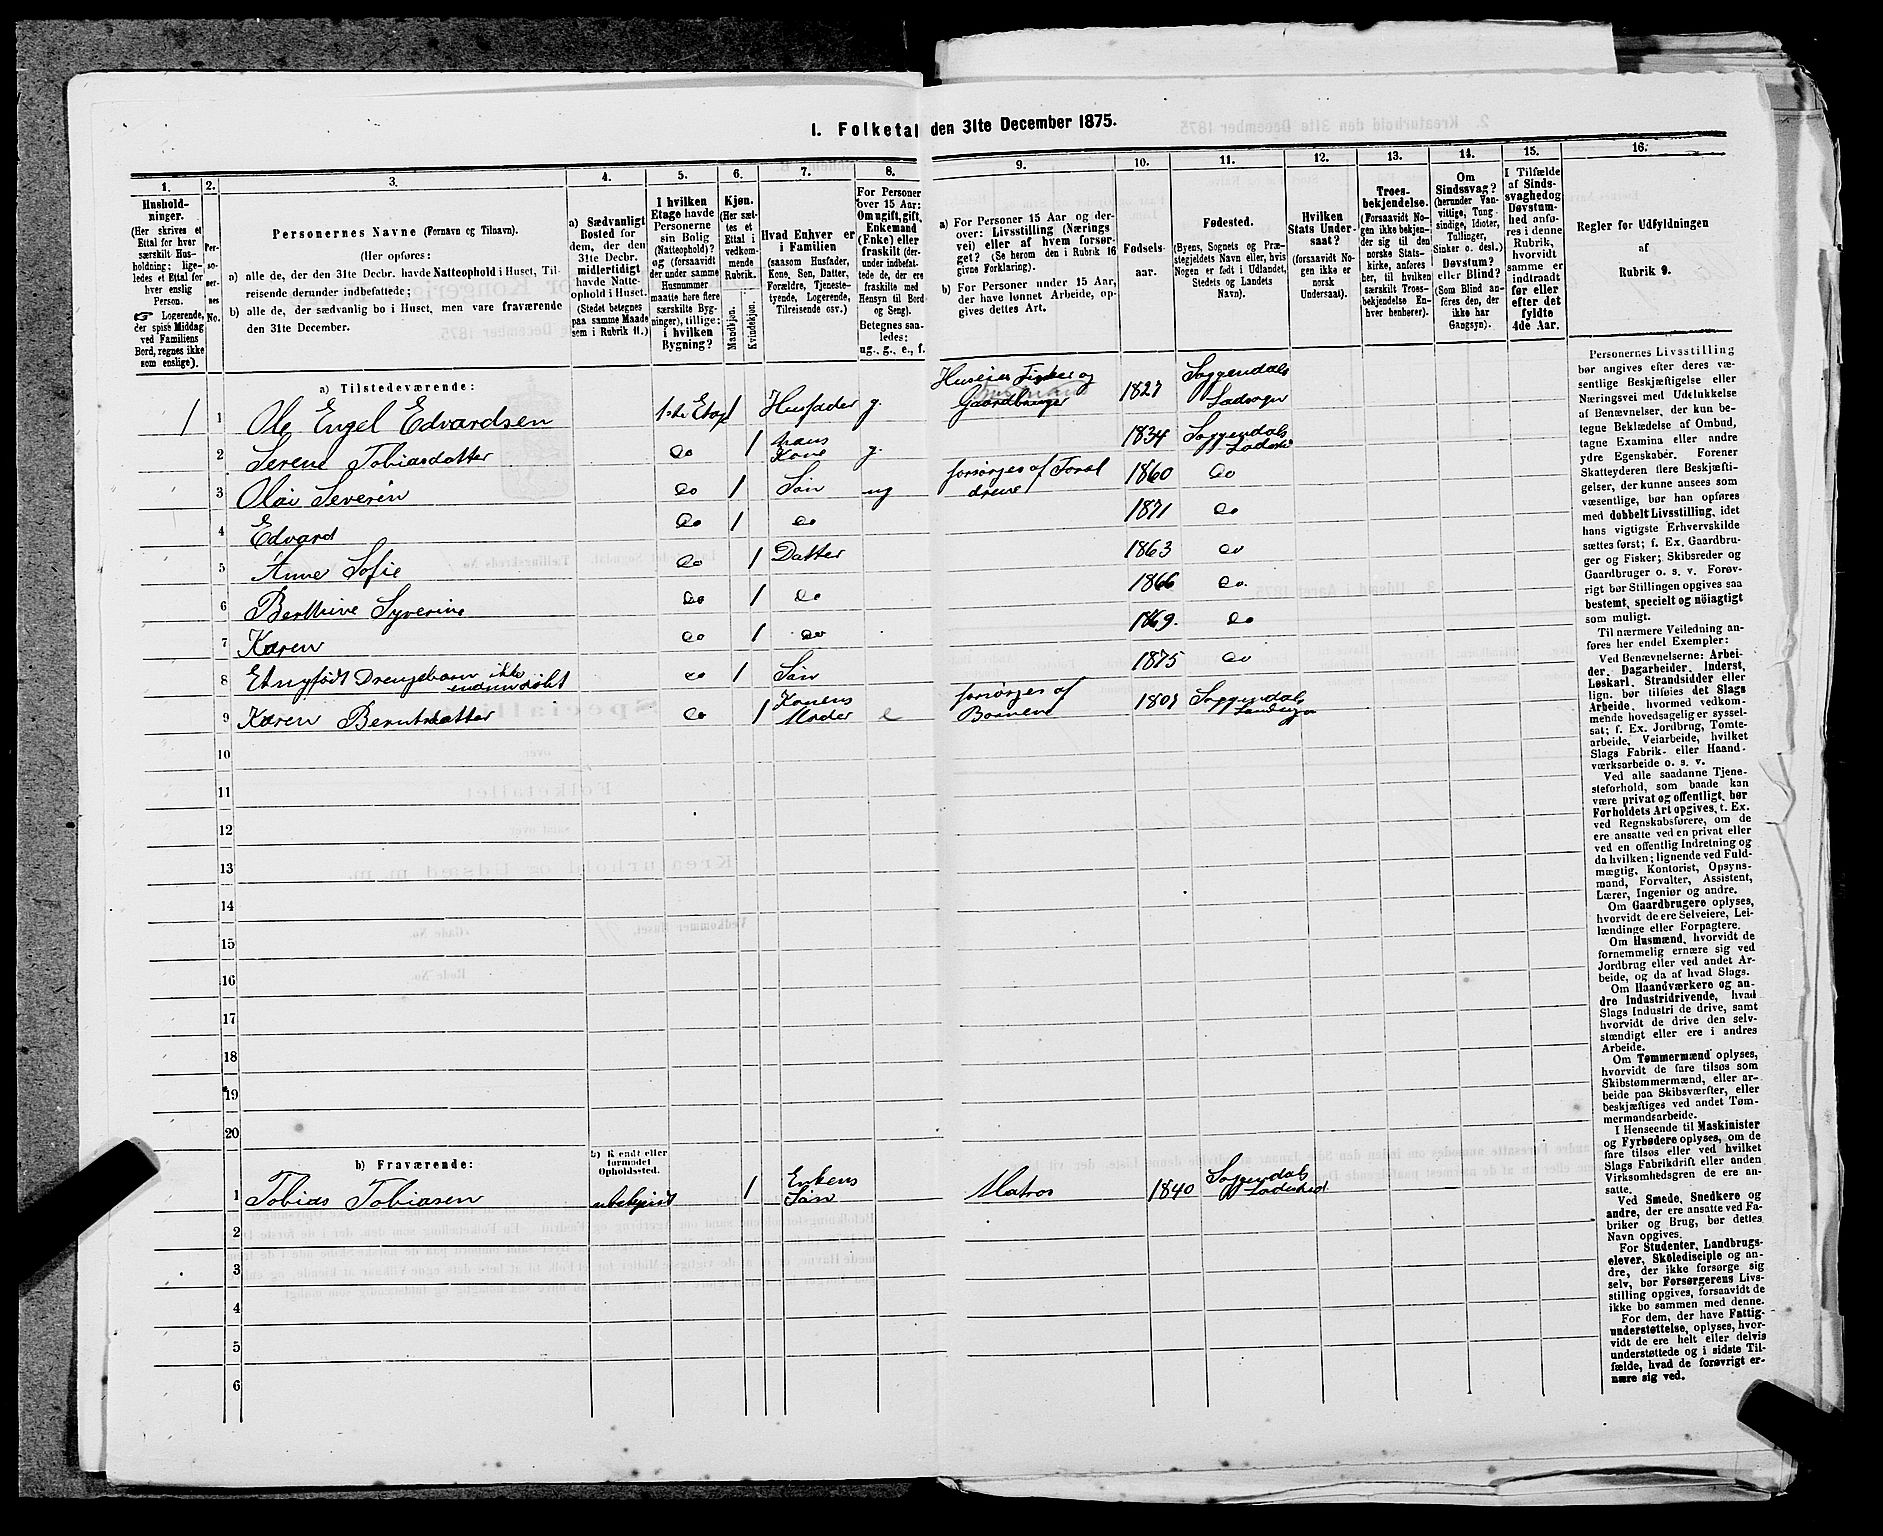 1. Folketal den 31te December 1875.
1. 2. 3. 4. 5. 6. 7. 8. 9. 10. 11. 12. 13. 14. 15. 16.
Husholdninger.
(Her skrives et
Ettal for hver
særskilt Husholdning; ligeledes et Ettal for
hver enslig
Person.
Logerende,
der spise Middag
ved Familiens
Bord, regnes ikke
som enslige).
Personernes No.
Personernes Navne (Fornavn og Tilnavn).
(Her opføres:
a) alle de, der den 31te Decbr. havde Natteophold i Huset, Tilreisende derunder indbefattede;
b) alle de, der sædvanlig bo i Huset, men vare fraværende
den 31te December.
a) Sædvanligt
Bosted for
dem, der den
31te Decbr.
midlertidigt
havde Natteophold i Huset.
(Stedet betegnes
paa samme Maade
sem i Rubrik 11.)
I hvilken
Etage havde
Personerne
sin Bolig
(Natteophold)?
og (forsaavidt
der under samme
Husnummer
maatte høre flere
særskilte Bygninger), tillige:
i hvilken
Bygning?
Kjøn.
(Her sættes et
Ettal i
vedkommende
Rubrik.
Mandkjøn.
Kvindekjøn.
Hvad Enhver er
i Familien
(saasom Husfader,
Kone, Søn, Datter,
Forældre, Tjenestetyende, Logerende,
Tilreisende osv.)
For Personer
over 15 Aar:
Om ugift, gift,
Enkemand
(Enke) eller
fraskilt (derunder indbefattede de, der ere
fraskilte med
Hensyn til Bord
og Seng).
Betegnes saaledes:
ug., g., e., f.
a) For Personer 15 Aar og derover: Livsstilling (Næringsvei) eller af hvem forsørget? (Se herom den i Rubrik 16
givne Forklaring).
b) For Personer under 15 Aar,
der have lønnet Arbeide, opgives dettes Art.
Fødselsaar.
Fødested.
(Byens, Sognets og Præstegjeldets Navn eller, hvis
Nogen er født i Udlandet,
Stedets og Landets
Navn).
Hvilken
Stats Undersaat?
(forsaavidt Nogen ikke er
norsk
Undersaat).
Troesbekjendelse.
(Forsaavidt Nogen ikke bekjender sig til den
norske Statskirke, anføres
her, til hvilken
særskilt Troesbekjendelse Enhver henhører).
Om
Sindssvag?
(herunder Vanvittige, Tungsindige, Idioter,
Tullinger,
Sinker o. desl.)
Døvstum?
eller Blind?
(Som Blind anføres den, der
ikke har
Gangsyn).
I Tilfælde
af Sindssvaghed og
Døvstumhed anføres i denne
Rubrik,
hvorvidt
samme er
indtraadt
før eller
efter det
fyldte
4de Aar.
Regler for Udfyldningen
af
Rubrik 9.
a) Tilstedeværende:
1 1 Ole Engel Edvardsen 1ste Etage 1 Husfader g. Huseier Fisker og Gaardbruger 1827 Soggendals Landsogn
2 Serene Tobiasdatter do 1 hans Kone g. 1834 Soggendals Ladested
3 Olai Severin do 1 Søn ug forsørges af Forældrene 1860 do
4 Edvard do 1 do 1871 do
5 Anne Sofie do 1 Datter 1863 do
6 Berthine Syverine do 1 do 1866 do
7 Karen do 1 do 1869. do
8 Et nyfødt Drengebarn ikke do 1 Søn 1875 do
9 Karen Berntsdatter do 1 Konens Moder e forsørges af Børnene Soggendals Landsogn
10
11
12
13
14
15
16
17
18
19
20
b) Fraværende:
b) Kjendt eller
formodet
Opholdssted.
1 Tobias Tobiasen ubekjendt 1 Enkens Søn Matros 1840 Soggendals Ladested
2
3
4
5
6
Personernes Livsstilling
bør angives efter deres væsentlige Beskjæftigelse eller
Næringsvei med Udelukkelse
af Benævnelser, der kun betegne Beklædelse af Ombud,
tagne Examina eller andre
ydre Egenskaber. Forener
Skatteyderen flere Beskjæftigelser, der kunne ansees som
væsentlige, bør han opføres
med dobbelt Livsstilling, idet
hans vigtigste Erhvervskilde
sættes først; f. Ex. Gaardbruger og Fisker; Skibsreder og
Gaardbruger o. s. v. Forøvrigt bør Stillingen opgives saa
bestemt, specielt og nöiagtigt
som muligt.
Til nærmere Veiledning anføres her endel Exempler:
Ved Benævnelserne: Arbeider, Dagarbeider, Inderst,
Løskarl, Strandsidder eller
lign. bør tilføies det Slags
Arbeide, hvormed vedkommende hovedsagelig er sysselsat; f. Ex. Jordbrug, Tømtearbeide, Veiarbeide, hvilket
Slags Fabrik- eller Haandværksarbeide o. s. v.
Ved alle saadanne Tjenesteforhold, som baade kan
være privat og offentligt, bør
Forholdets Art opgives, t. Ex.
ved Regnskabsførere, om de
ere ansatte ved en privat eller
ved en offentlig Indretning og
da hvilken; lignende ved Fuldmægtig, Kontorist, Opsynsmand, Forvalter, Assistent,
Lærer, Ingeniør og andre.
Om Gaardbrugere oplyses,
hvorvidt de ere Selveiere, Leilændinge eller Forpagtere.
Om Husmænd, hvorvidt de
fornemmelig ernære sig ved
Jordbrug eller ved andet Arbeide, og da af hvad Slags.
Om Haandværkere og andre Industridrivende, hvad
Slags Industri de drive, samt
hvorvidt de drive den selvstændigt eller ere i andres
Arbeide.
Om Tømmermænd oplyses,
hvorvidt de fare tilsøs som
Skibstømmermænd, eller arbeide paa Skibsværfter, eller
beskjæftiges ved andet Tømmermandsarbeide.
I Henseende til Maskinister
og Fyrbødere oplyses, om de
fare tilsøs eller ved hvilket
Slags Fabrikdrift eller anden
Virksomhedsgren de ere ansatte.
Ved Smede, Snedkere og
andre, der ere ansatte ved Fabriker og Brug, bør dettes
Navn opgives.
For Studenter, Landbrugselever, Skoledisciple og andre, der ikke forsørge sig
selv, bør Forsørgerens Livsstilling opgives, forsaavidt de
ikke bo sammen med denne.
For dem, der have Fattigunderstøttelse, oplyses, hvorvidt de ere helt eller delvis
understøttede og i sidste Tilfælde, hvad de forøvrigt ernære sig ved.